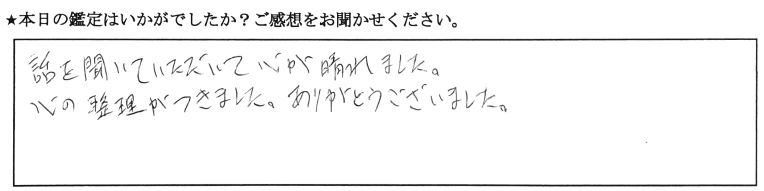 ★本日の鑑定はいかがでしたか？ご感想をお聞かせください。
話を聞いていただいて心が晴れました。
心の整理がつきました。ありがとうございました。